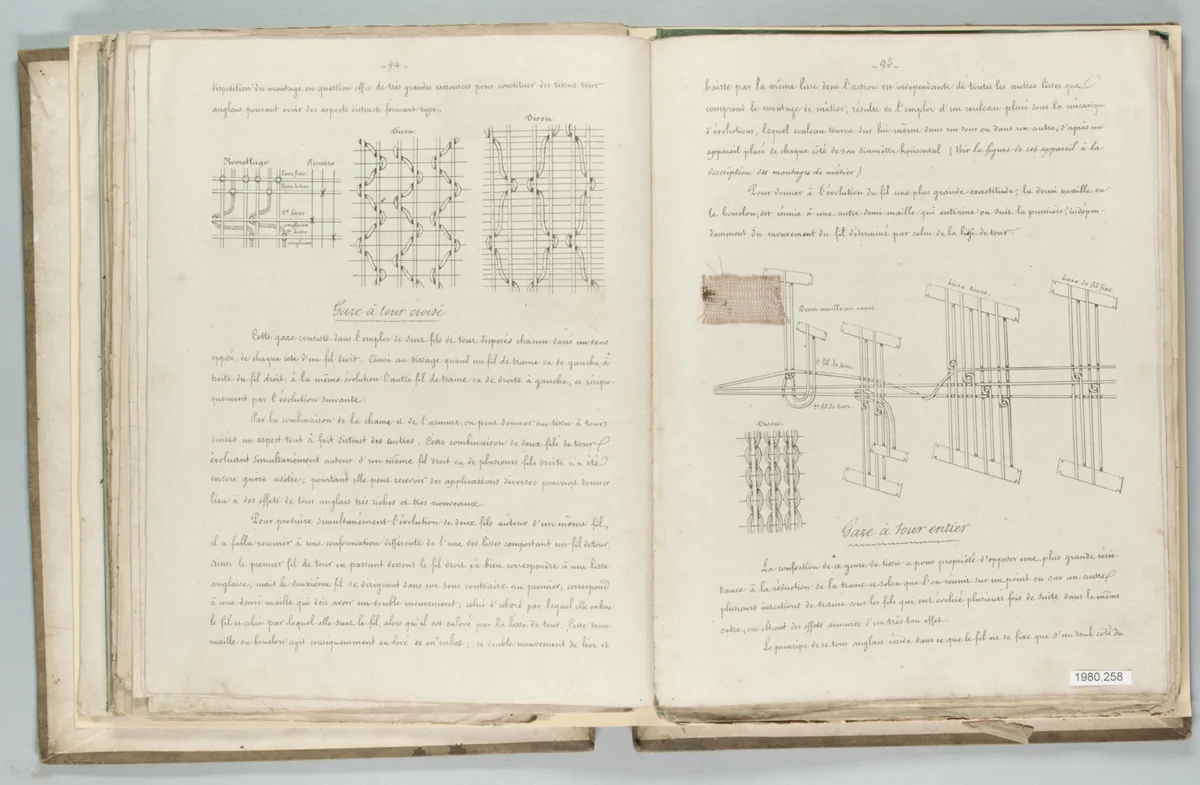 - 94 -
disposition du montage en question offre de très grandes ressources pour constituer des tissus tour
anglais pouvant avoir des aspects distincts formant type.
Remettage
Armure
lisse fixe
lisse de tour
1re lisse
anglaise
2e lisse
anglaise
Tissu
Tissu
Gaze à tour croisé
Cette gaze consiste dans l'emploi de deux fils de tour disposés chacun dans un sens
opposé, de chaque côté d'un fil droit. Ainsi au tissage quand un fil de trame va de gauche à
droite du fil droit, à la même évolution l'autre fil de trame va de droite à gauche, et récipro-
quement par l'évolution suivante.
Par la combinaison de la chaine et de l'armure, on peut donner au tissu à tours
croisés un aspect tout à fait distinct des autres. Cette combinaison de deux fils de tour
évoluant simultanément autour d'un même fil droit ou de plusieurs fils droits, n'a été
encore guère usitée; pourtant elle peut recevoir des applications diverses pouvant donner
lieu à des effets de tour anglais très riches et très nouveaux.
Pour produire simultanément l'évolution de deux fils autour d'un même fil,
il a fallu recourir à une conformation différente de l'une des lisses comportant un fil de tour.
Ainsi le premier fil de tour en passant dessous le fil droit va bien correspondre à une lisse
anglaise, mais le deuxième fil se dirigeant dans un sens contraire au premier, correspond
à une demi maille qui doit avoir un double mouvement; celui d'abord par lequel elle entre
le fil et celui par lequel elle suit le fil, alors qu'il est enlevé par la lisse de tour. Cette demi
maille ou bouclon agit conséquemment en levé et en rabat; ce double mouvement de lève et
- 95 -
baisse par la même lisse dont l'action est indépendante de toutes les autres lisses que
comprend le montage de métier, résulte de l'emploi d'un rouleau placé sous la mécanique
d'évolutions, lequel rouleau tourne sur lui même dans un sens ou dans un autre, d'après un
appareil placé de chaque côté de son diamètre horizontal (Voir la figure de cet appareil à la
description des montages de métier)
Pour donner à l'évolution du fil une plus grande exactitude, la demi maille ou
le bouclon, est réunie à une autre demi maille qui entraine ou suit la première, indépen-
damment du mouvement du fil déterminé par celui de la lisse de tour.
Demi maille au repos
1r fil de tour
2e fil de tour
Lisse tours
Lisse de fil fixe
Tissu
Gaze à tour entier
La confection de ce genre de tissu a pour propriété d'opposer une plus grande résis-
tance à la réduction de la trame et selon que l'on réunit sur un point ou sur un autre
plusieurs insertions de trame sous les fils qui ont évolué plusieurs fois de suite dans le même
ordre, on obtient des effets armures d'un très bon effet.
Le principe de ce tour anglais réside dans ce que le fil ne se fixe que d'un seul côté du
1980.258